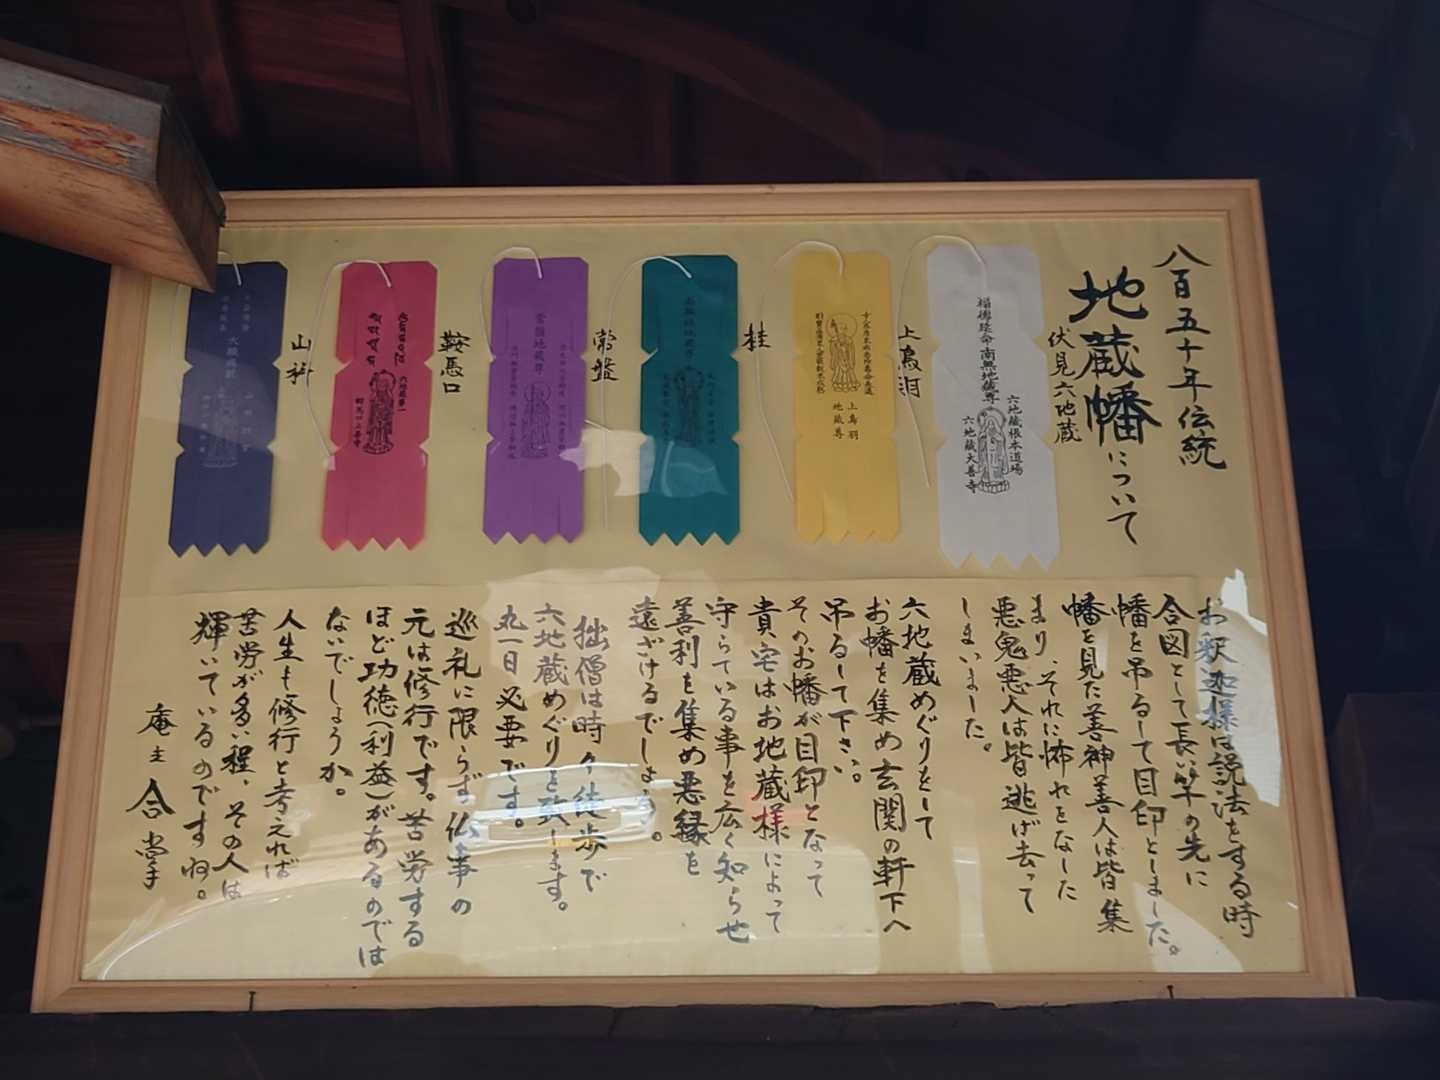 八百五十年伝統
地蔵幡について
伏見六地蔵
福徳延命 南無地蔵尊
六地蔵根本道場
六地蔵大善寺
上鳥羽
上鳥羽
地蔵尊
桂
常盤
常盤地蔵尊
鞍馬口
六地蔵第一
鞍馬口上善寺
山科
お釈迦様は説法をする時
合図として長い竿の先に
幡を吊るして目印としました。
幡を見た善神善人は皆集
まり、それに怖れをなした
悪鬼悪人は皆逃げ去って
しまいました。
六地蔵めぐりをして
お幡を集め玄関の軒下へ
吊るして下さい。
そのお幡が目印となって
貴宅はお地蔵様によって
守らている事を広く知らせ
善利を集め悪縁を
遠ざけるでしょう。
拙僧は時々徒歩で
六地蔵めぐりを致します。
丸一日必要です。
巡礼に限らず仏事の
元は修行です。苦労する
ほど功徳(利益)があるのでは
ないでしょうか。
人生も修行と考えれば
苦労が多い程、その人は
輝いているのですね。
庵主 合掌